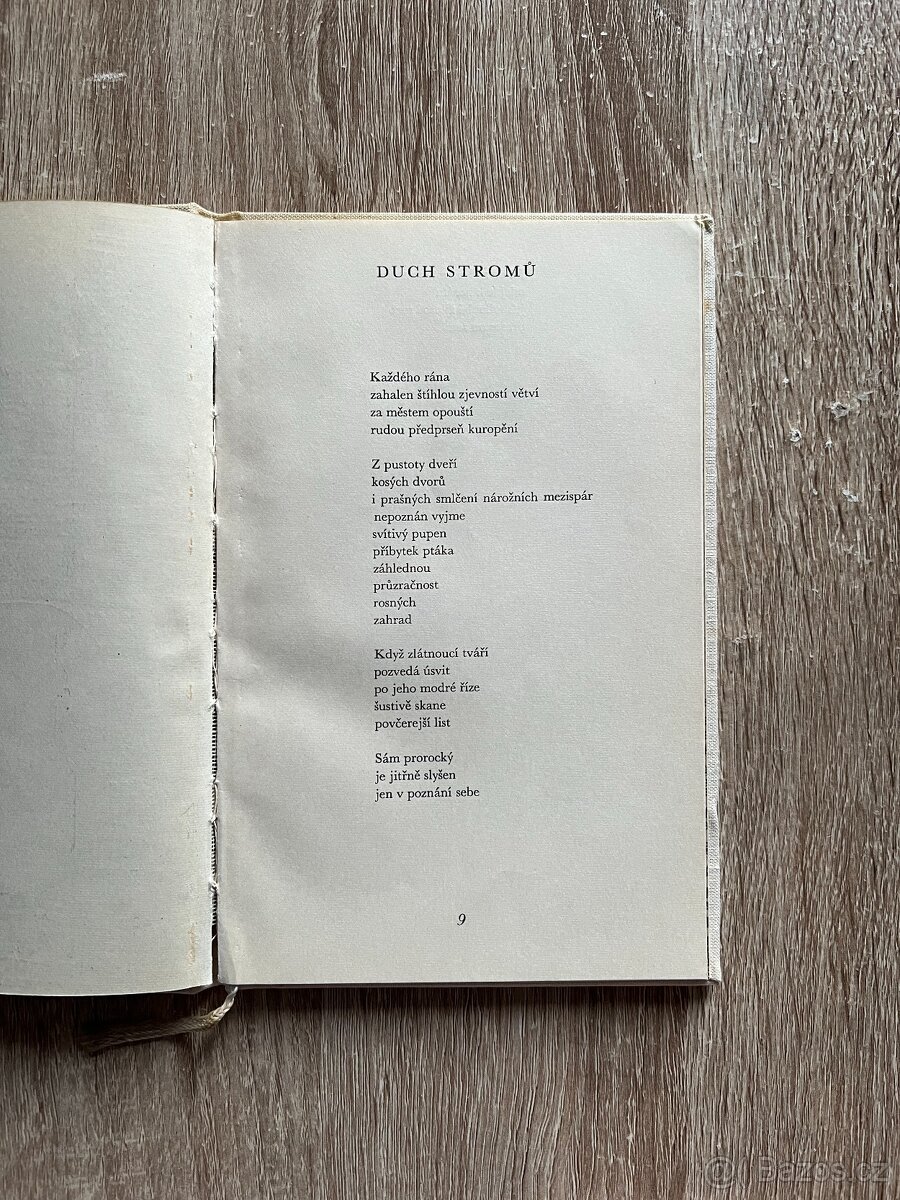 DUCH STROMŮ
Každého rána
zahalen štíhlou zjevností větví
za městem opouští
rudou předprseň kuropění
Z pustoty dveří
kosých dvorů
i prašných smlčení nárožních mezispár
nepoznán vyjme
svítivý pupen
příbytek ptáka
záhlednou
průzračnost
rosných
zahrad
Když zlátnoucí tváří
pozvedá úsvit
po jeho modré říze
šustivě skane
povčerejší list
Sám prorocký
je jitřně slyšen
jen v poznání sebe
9
Bazos.cz